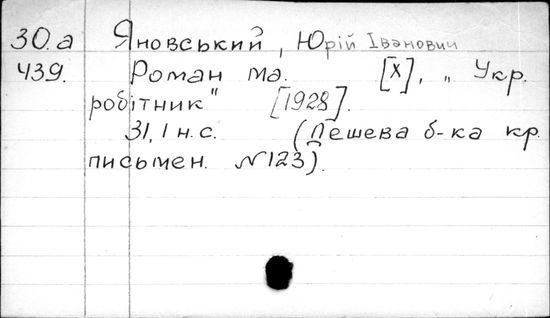 30.а Яновський, Юрій Іванович
439. Роман Ма. [Х], „Укр.
робітник" [1928].
31, 1 н.с. (Дешева б-ка кр.
письмен. №123).